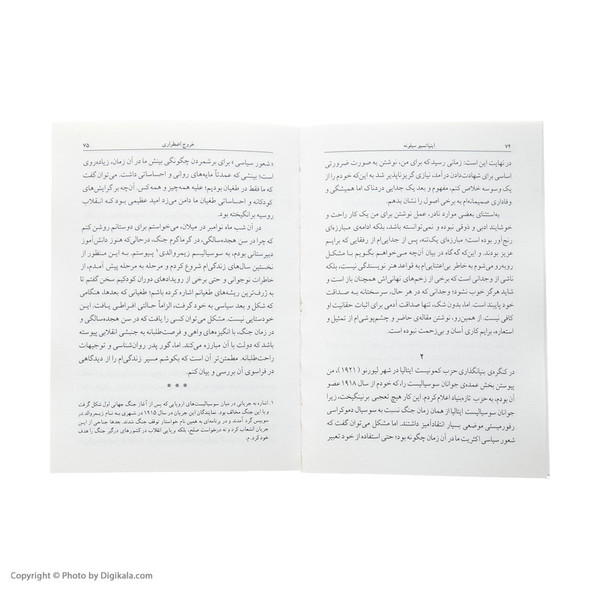 ۷۴ اینیاتسیو سیلونه
در نهایت این است: زمانی رسید که برای من، نوشتن به صورت ضرورتی
اساسی برای شهادت‌دادن درآمد، نیازی گریزناپذیر شد به این‌که خودم را از
یک وسوسه خلاص کنم، مفهوم و بعد یک جدایی دردناک اما همیشگی و
وفاداری صمیمانه‌ام به برخی اصول را نشان بدهم.
به‌استثنای بعضی موارد نادر، عمل نوشتن برای من یک کار راحت و
خوشایند ادبی و ذوقی نبوده و نمی‌توانسته باشد، بلکه ادامه‌ی مبارزه‌ای
رنج‌آور بوده است؛ مبارزه‌ای یک‌تنه، پس از جدایی‌ام از رفقایی که برایم
عزیز بودند. و این‌که گه‌گاه در بیان آن‌چه می‌خواهم بگویم با مشکل
روبه‌رو می‌شوم به خاطر بی‌اعتنایی‌ام به قواعد هنر نویسندگی نیست، بلکه
ناشی از وجدانی است که برخی از زخم‌های نهانی‌اش همچنان باز است و
شاید هرگز خوب نشود؛ وجدانی که در هر حال، سرسختانه به صداقت
پایبند است. اما، بدون شک، تنها صداقت آدمی برای اثبات حقانیت او
کافی نیست. از همین‌رو، نوشتن مقاله‌ی حاضر و چشم‌پوشی‌ام از تمثیل و
استعاره، برایم کاری آسان و بی‌زحمت نبوده است.
۲
در کنگره‌ی بنیانگذاری حزب کمونیست ایتالیا در شهر لیورنو (۱۹۲۱)، من
پیوستن بخش عمده‌ی جوانان سوسیالیست را، که خودم از سال ۱۹۱۸ عضو
آن بودم، به حزب تازه‌بنیاد اعلام کردم. این کار هیچ تعجبی برنینگیخت، زیرا
جوانان سوسیالیست ایتالیا از همان زمان جنگ نسبت به سوسیال دموکراسی
رفورمیستی موضعی بسیار انتقادآمیز داشتند. اما مشکل می‌توان گفت که
شعور سیاسی اکثریت ما در آن زمان چگونه بود؛ حتی استفاده از خود تعبیر
خروج اضطراری ۷۵
«شعور سیاسی» برای برشمردن چگونگی بینش ما در آن زمان، زیاده‌روی
است؛ بینشی که عمدتاً مایه‌های روانی و احساساتی داشت. می‌توان گفت
که ما فقط در طغیان بودیم؛ علیه همه‌چیز و همه‌کس. آن‌چه بر گرایش‌های
کودکانه و احساساتی طغیان ما دامن می‌زد امید عظیمی بود که انقلاب
روسیه برانگیخته بود.
در آن شب ماه نوامبر در میلان، می‌خواستم برای دوستانم روشن کنم
که چرا در سن هجده‌سالگی، در گرماگرم جنگ، درحالی‌که هنوز دانش‌آموز
دبیرستانی بودم، به سوسیالیسم زیمروالدی۱ پیوستم. به این منظور از
نخستین سال‌های زندگی‌ام شروع کردم و مرحله به مرحله پیش آمدم، از
خاطرات نوجوانی و حتی برخی از رویدادهای دوران کودکیم سخن گفتم تا
به ژرف‌ترین ریشه‌های طغیانم اشاره کرده باشم؛ طغیانی که بعدها، بر اثر
جنگ و وسعتی که بعد به خود گرفت، الزاماً حالتی افراطی یافت. این
خودستایی نیست. مشکل می‌توان کسی را یافت که در سن هجده‌سالگی و
در زمان جنگ، با انگیزه‌های واهی و فرصت‌طلبانه به جنبشی انقلابی پیوسته
باشد که دولت با آن مبارزه می‌کند. اما، گور پدر روان‌شناسی و توجیهات
راحت‌طلبانه. مطمئن‌تر آن است که بکوشم مسیر زندگی‌ام را از دیدگاهی
در فراسوی آن بررسی و بیان کنم.
* * *
۱. اشاره به جریانی در میان سوسیالیست‌های اروپایی است که پس از آغاز جنگ جهانی اول شکل گرفت
و با این جنگ مخالف بود. نمایندگان این جریان در سال ۱۹۱۵ در شهری به نام زیمروالد در
سویس گرد آمدند و در برنامه‌ای به همین نام خواستار توقف جنگ شدند. بعدها جناحی از این
جریان انشعاب کرد و نه درخواست صلح، بلکه برپایی انقلاب در کشورهای درگیر جنگ را هدف
خود کرد. م.
Copyright © Photo by Digikala.com